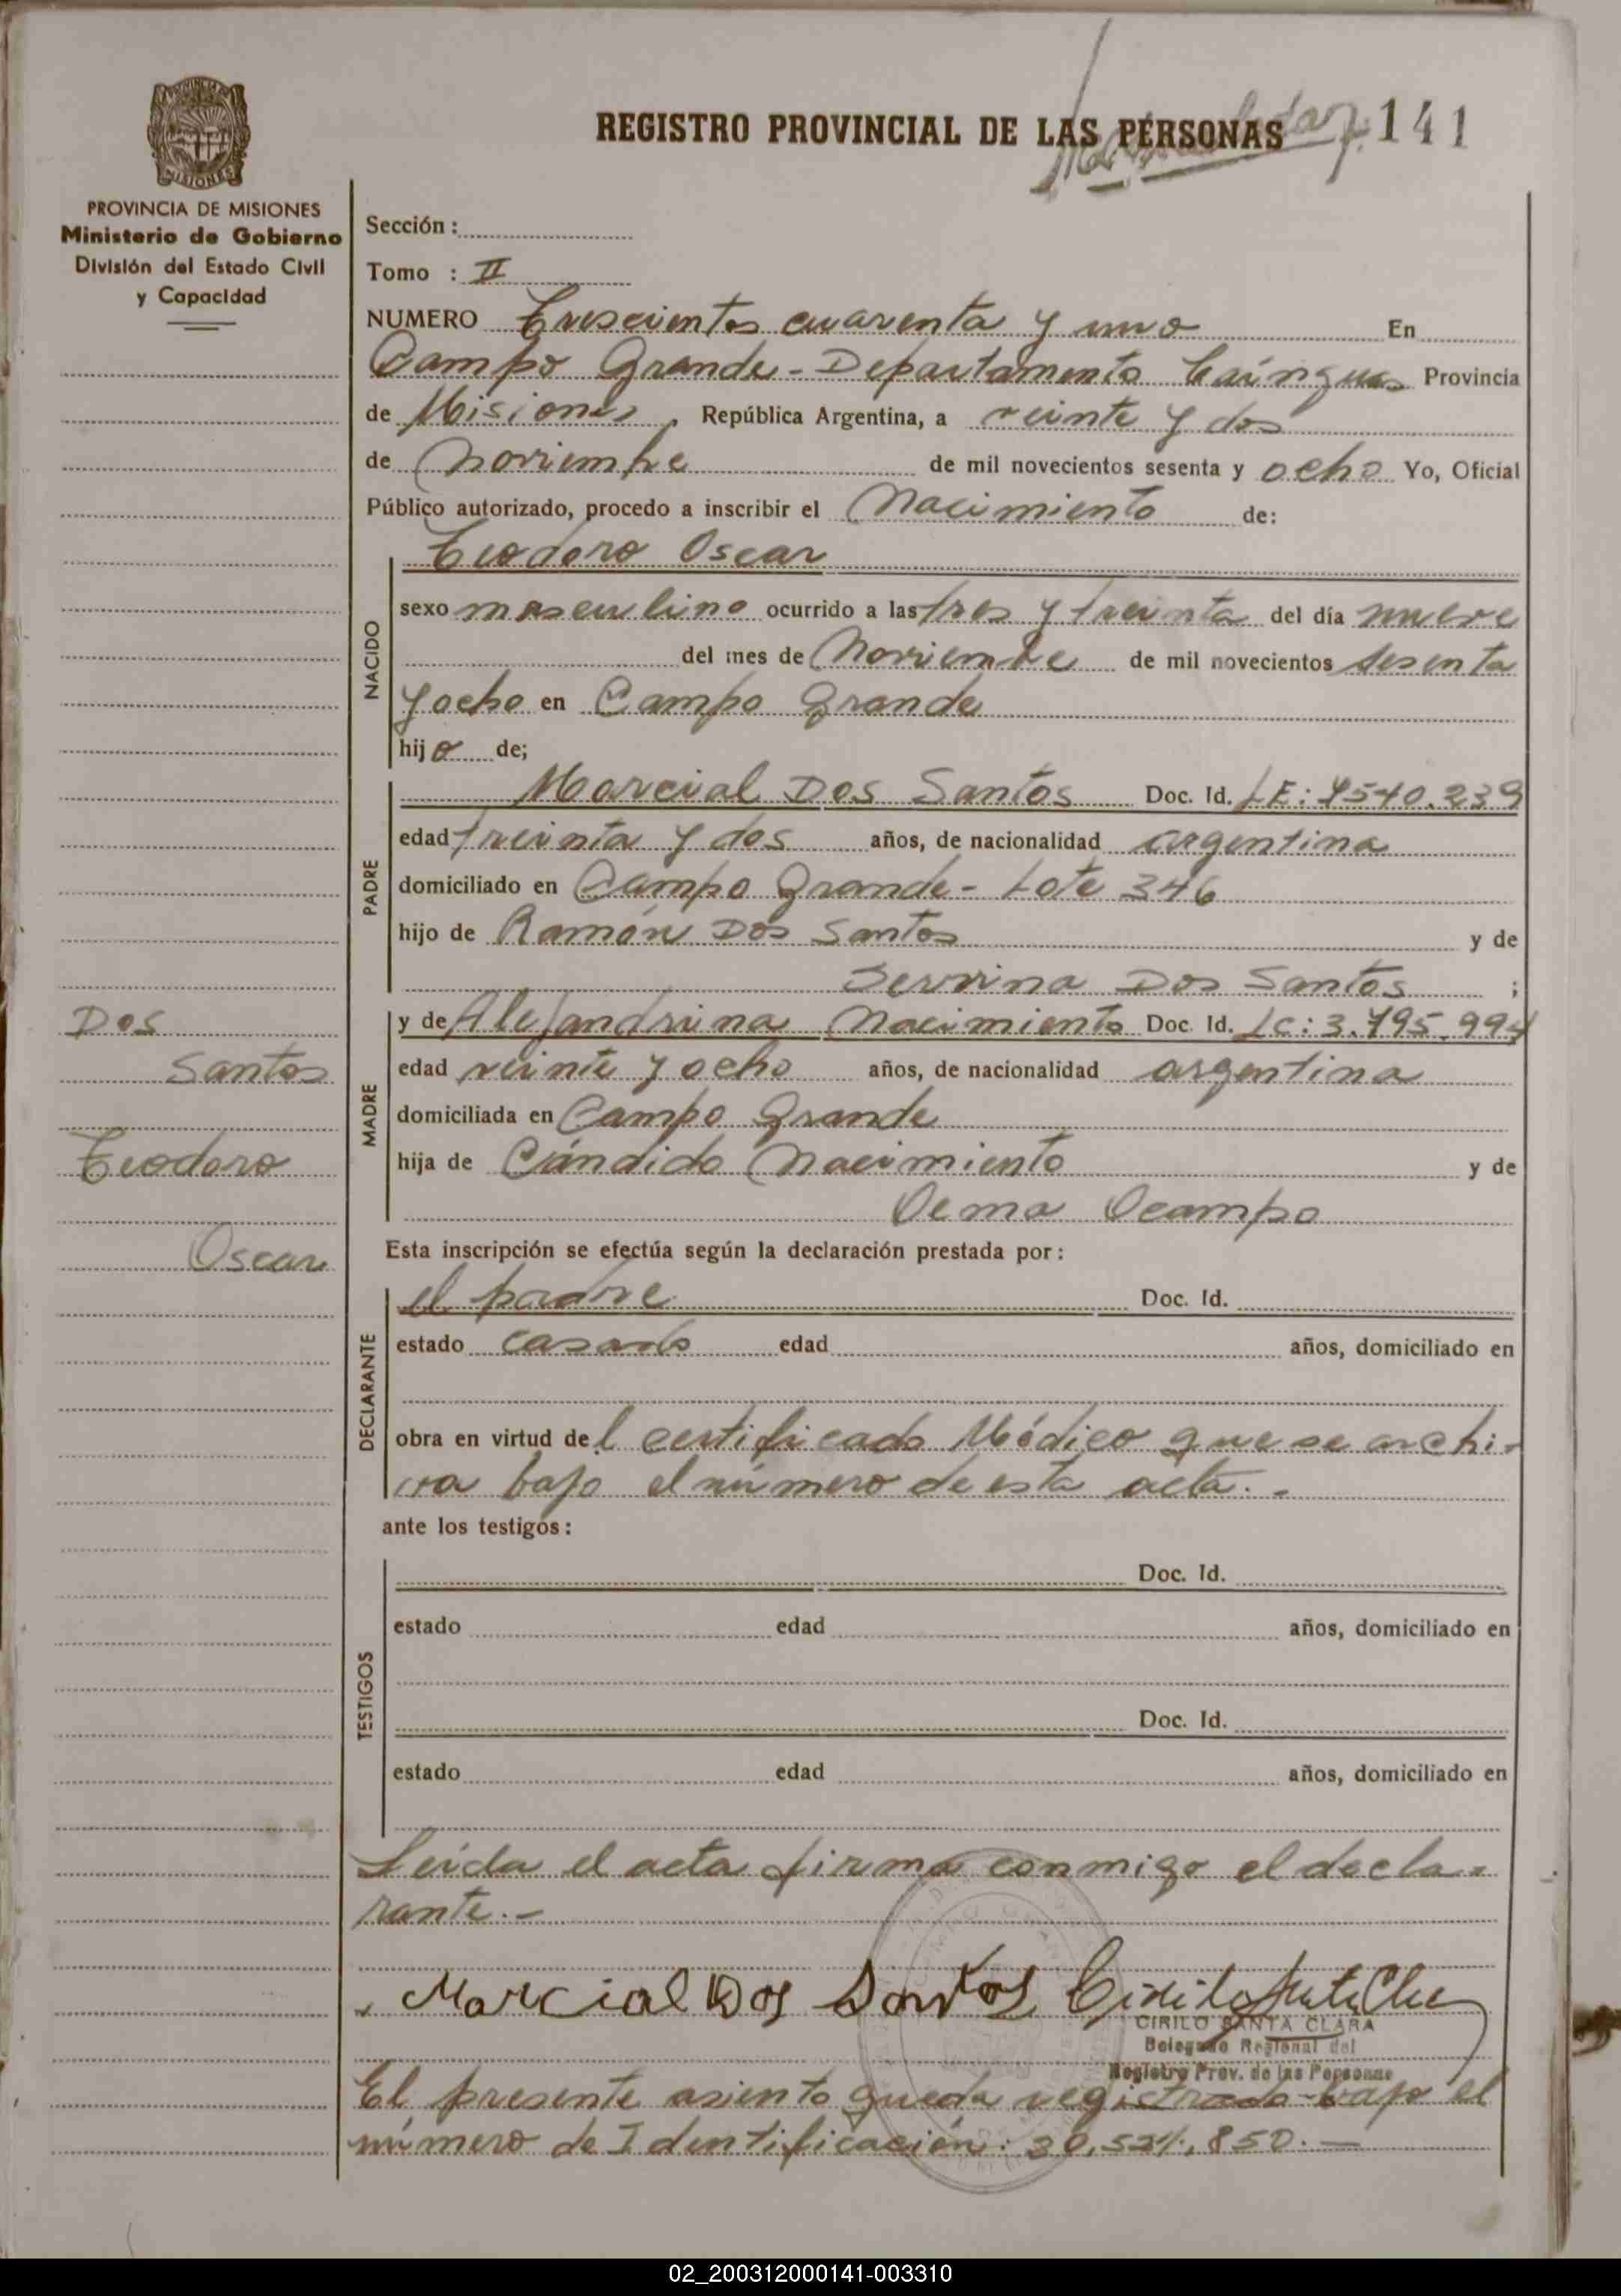 REGISTRO PROVINCIAL DE LAS PERSONAS 141
MISIONES
PROVINCIA DE MISIONES
Ministerio de Gobierno
División del Estado Civil
y Capacidad
Sección :
Tomo : II
NUMERO Trescientos cuarenta y uno En
Campo Grande - Departamento Cainguas Provincia
de Misiones, República Argentina, a veinte y dos
de Noviembre de mil novecientos sesenta y ocho Yo, Oficial
Público autorizado, procedo a inscribir el Nacimiento de:
Teodoro Oscar
NACIDO
sexo masculino ocurrido a las tres y treinta del día nueve
del mes de Noviembre de mil novecientos sesenta
y ocho en Campo Grande
hijo de;
PADRE
Marcial Dos Santos Doc. Id. LE: 7540.239
edad treinta y dos años, de nacionalidad argentina
domiciliado en Campo Grande - Lote 346
hijo de Ramón Dos Santos y de
Dos Santos ;
MADRE
y de Alejandrina Nacimiento Doc. Id. LC: 3.795.994
edad veinte y ocho años, de nacionalidad argentina
domiciliada en Campo Grande
hija de Cándido Nacimiento y de
Ocampo
Dos
Santos
Teodoro
Oscar
Esta inscripción se efectúa según la declaración prestada por:
DECLARANTE
el padre Doc. Id.
estado casado edad años, domiciliado en
obra en virtud del certificado Médico que se archi-
va bajo el número de esta acta.-
ante los testigos:
TESTIGOS
Doc. Id.
estado edad años, domiciliado en
Doc. Id.
estado edad años, domiciliado en
Leída el acta firma conmigo el decla-
rante.-
Marcial Dos Santos
CIRILO SANTA CLARA
Delegado Regional del
Registro Prov. de las Personas
El presente asiento queda registrado bajo el
número de Identificación: 20.521.850.-
02_200312000141-003310